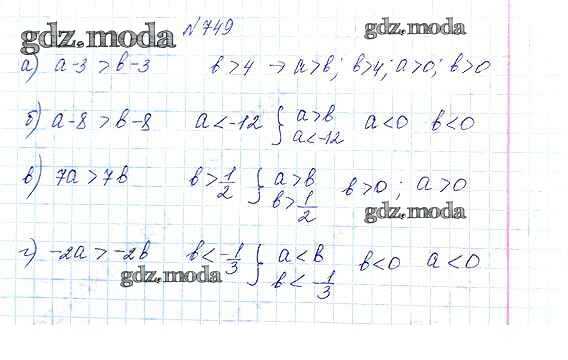 gdz.moda №749 gdz.moda
а) a-3 > b-3 b>4 → a>b; b>4; a>0; b>0
б) a-8 > b-8 a<-12 { a>b a<-12 a<0 b<0
gdz.moda
в) 7a > 7b b>1/2 { a>b b>1/2 b>0; a>0
г) -2a > -2b b<-1/3 { a<b b<-1/3 b<0 a<0
gdz.moda